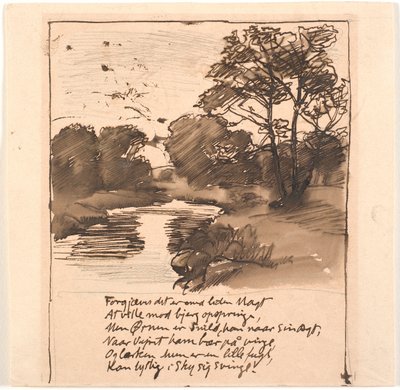 Forgjæves det er med liden Magt
At ville mod bjerg opspringe,
Men Ørnen er snild, han naar sin Agt,
Naar Vejret ham bær paa vinge,
Og Lærken hun er en lille fugl,
Kan lystig i Sky sig svinge